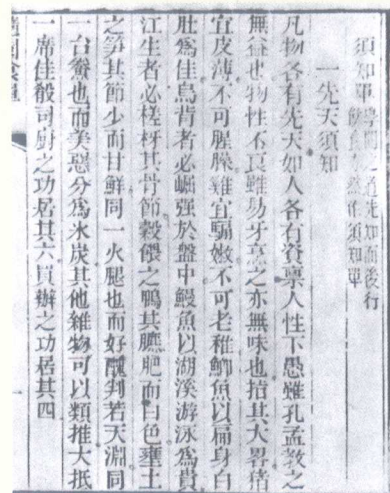 須知單
學問之道先知而後行
飲食亦然作須知單
一先天須知
凡物各有先天如人各有資稟人性下愚雖孔孟教之
無益也物性不良雖易牙烹之亦無味也指其大畧猪
宜皮薄不可腥臊雞宜騸嫩不可老稚鯽魚以扁身白
肚爲佳烏背者必崛强於盤中鰻魚以湖溪游泳爲貴
江生者必槎枒其骨節穀餵之鴨其膘肥而白色壅土
之筍其節少而甘鮮同一火腿也而好醜判若天淵同
一台鯗也而美惡分爲氷炭其他雜物可以類推大抵
一席佳殽司廚之功居其六買辦之功居其四
隨園食單